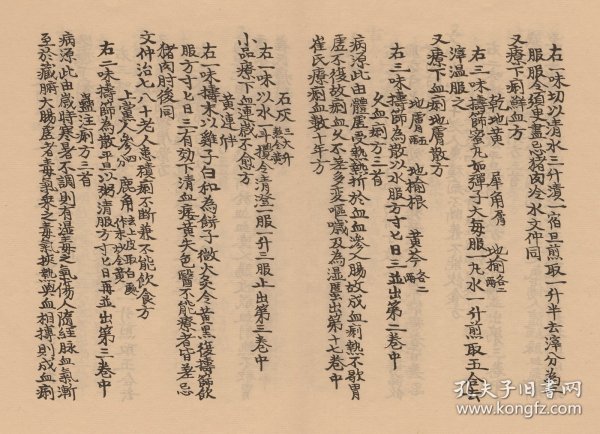 右一味切以清水三升漬一宿旦煎取一升半去滓分為二
服服令須臾盡忌猪肉冷水文仲同
又療下痢鮮血方
乾地黄 犀角屑 地榆各二兩
右三味搗篩蜜丸如彈子大每服一丸水一升煎取五合去
滓温服之
又療下血痢地膚散方
地膚五兩 地榆根 黄芩各二兩
右三味搗篩為散以水服方寸匕日三並出第二卷中
久血痢方三首
病源此由體虛受熱熱折於血血滲入腸故成血痢熱不歇胃
虛不復故痢血久不差多變嘔噦及為濕䘌出第十七卷中
崔氏療痢血數十年方
石灰三大升熬令黄
右一味以水一斗攪令清澄一服一升三服止出第三卷中
小品療下血連歲不愈方
黄連半兩
右一味搗末以雞子白和為餅子微火炙令黄黑復搗篩飲
服方寸匕日三有効下清血痿黄失色醫不能療者皆差忌
猪肉肘後同
文仲治七八十老人患積痢不斷兼不能飲食方
上黨人參四分 鹿角
右二味搗篩為散平旦以粥清服方寸匕日再並出第三卷中
蠱注痢方三首
病源此由歲時寒暑不調則有濕毒之氣傷人隨經脉血氣漸
至於臟腑大腸虛者毒氣乘之毒氣挾熱與血相搏則成血痢
孔夫子旧书网
www.kongfz.com